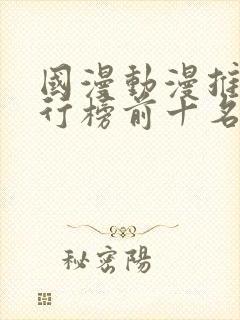 國漫動漫推
行榜前十名
秘密陽